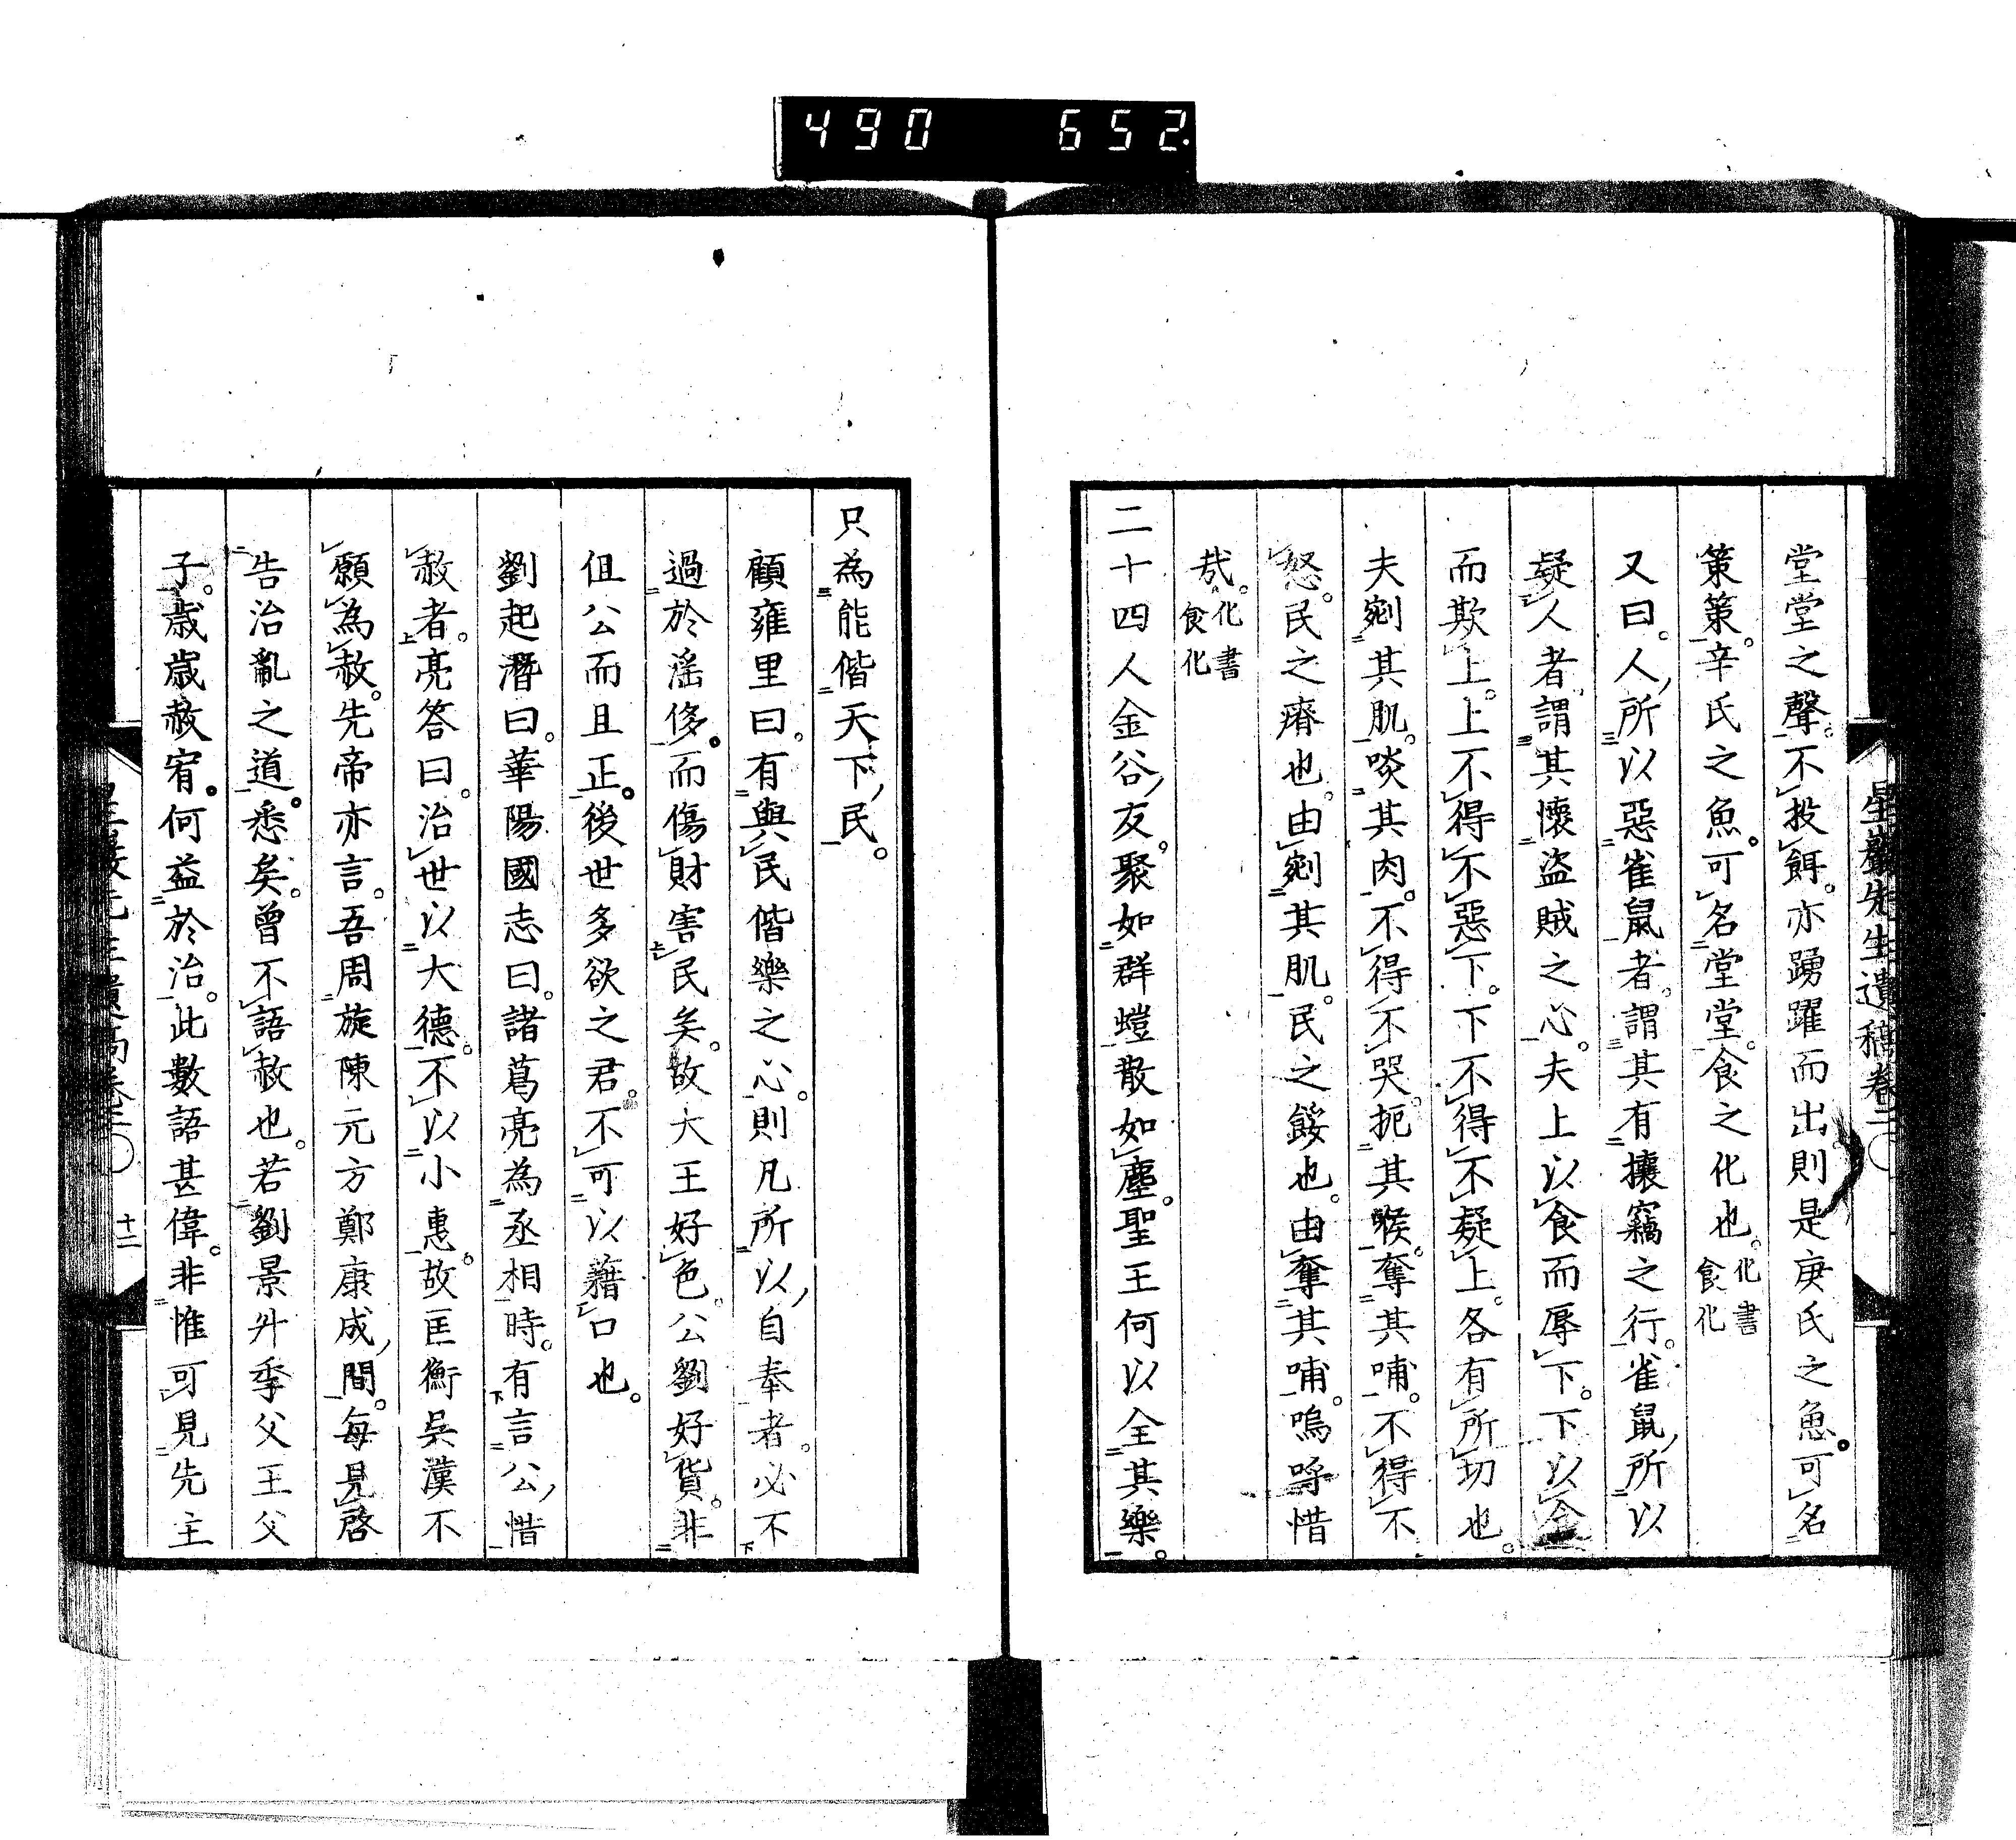 490 652
星巖先生遺稿卷二
堂堂之聲。不投餌。亦踴躍而出。則是庚氏之魚。可名
策策。辛氏之魚。可名堂堂。食之化也。化書食化
又曰。人所以惡雀鼠者。謂其有攘竊之行。雀鼠所以
疑人者。謂其懷盜賊之心。夫上以食而辱下。下以食
而欺上。上不得不惡下。下不得不疑上。各有所切也。
夫剜其肌。啖其肉。不得不哭。扼其喉。奪其哺。不得不
怒。民之瘠也。由剜其肌。民之餒也。由奪其哺。嗚呼惜
哉。化書食化
二十四人金谷友。聚如群螘散如塵。聖王何以全其樂。
只為能偕天下民。
顧雍里曰。有與民偕樂之心。則凡所以自奉者。必不
過於滛侈。而傷財害民矣。故大王好色。公劉好貨。非
但公而且正。後世多欲之君。不可以藉口也。
劉起潛曰。華陽國志曰。諸葛亮為丞相時。有言公惜
赦者。亮答曰。治世以大德。不以小惠。故匡衡吳漢不
願為赦。先帝亦言。吾周旋陳元方鄭康成間。每見啓
告治亂之道。悉矣。曾不語赦也。若劉景升季父王父
子。歲歲赦宥。何益於治。此數語甚偉。非惟可見先主
十二